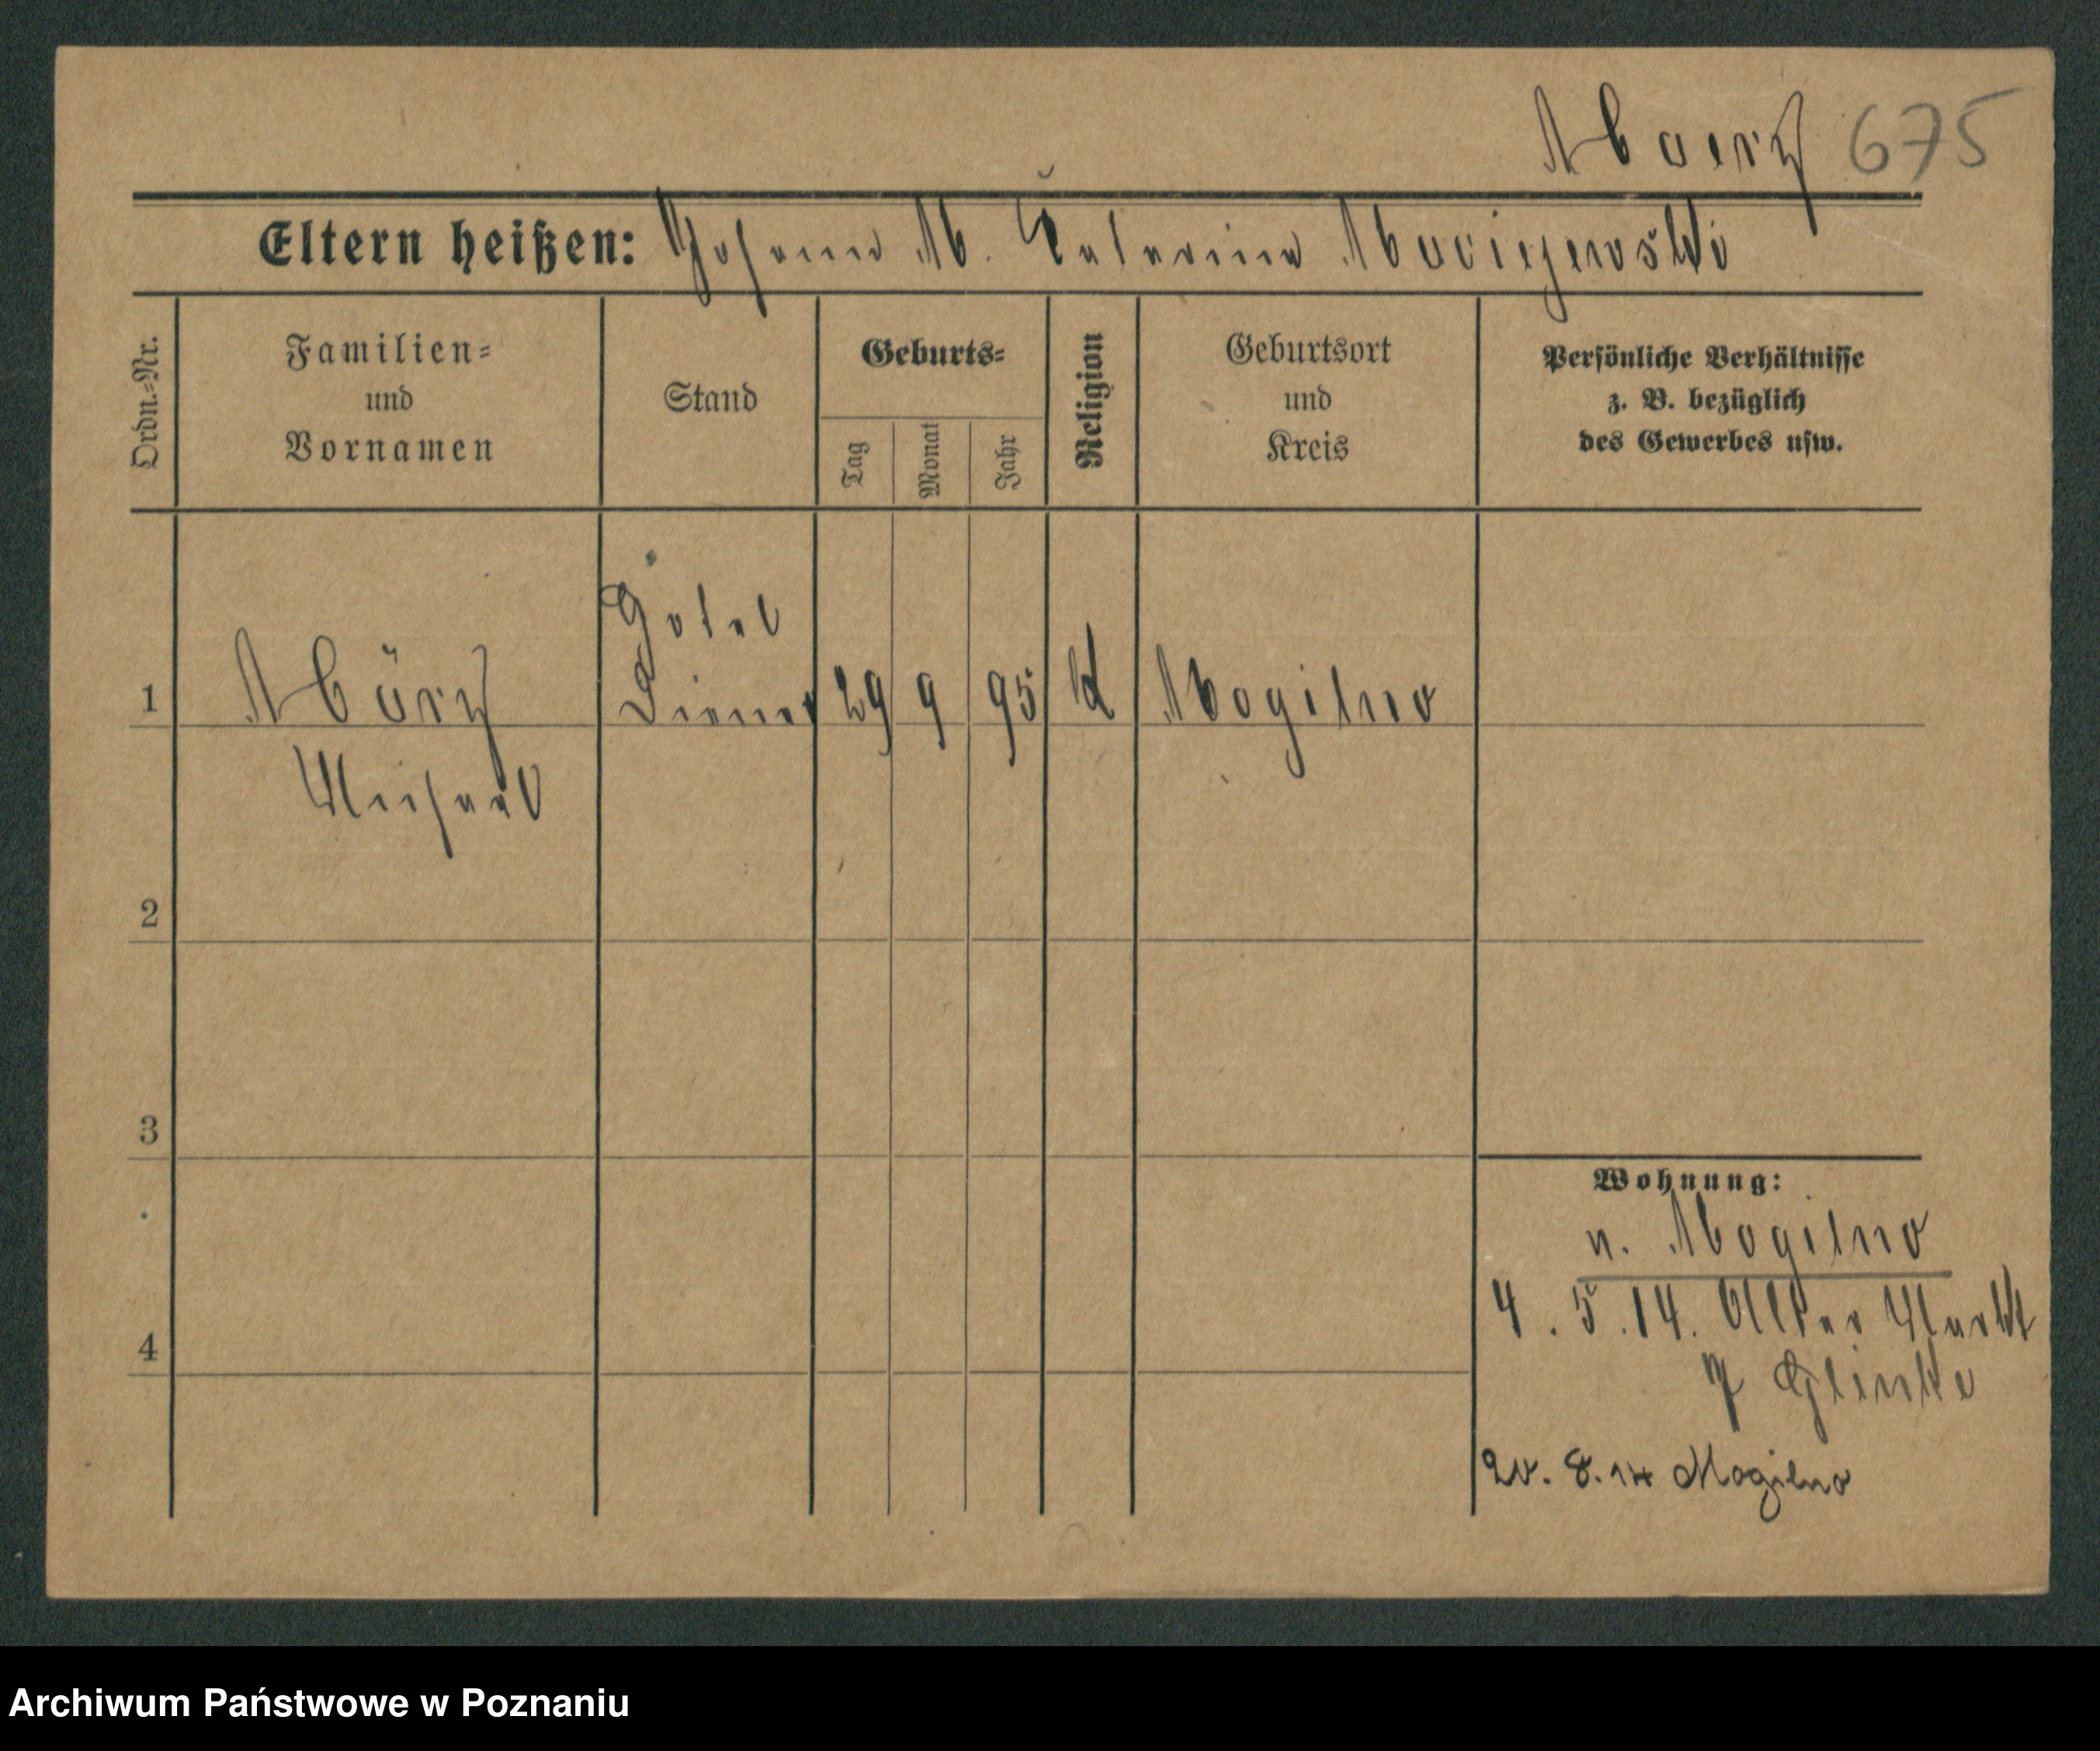 Maerz 675
Eltern heißen: Johann M. Katarina Maciejewski
Ordn.=Nr.
Familien=
und
Vornamen
Stand
Geburts=
Tag
Monat
Jahr
Religion
Geburtsort
und
Kreis
Persönliche Verhältnisse
z. B. bezüglich
des Gewerbes usw.
Hotel
1 März Diener 29 9 95 k Mogilno
Michael
2
3
Wohnung:
n. Mogilno
4. 5. 14. Alter Markt
4
7 Glinke
20. 8. 14 Mogilno
Archiwum Państwowe w Poznaniu